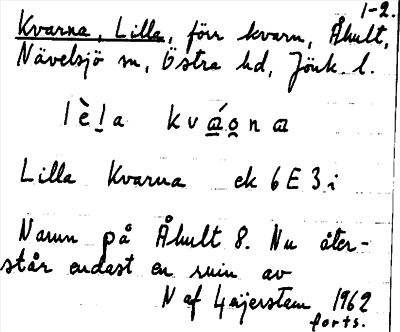 1-2.
Kvarna, Lilla, förr kvarn, Åhult,
Nävelsjö sn, Östra hd, Jönk. l.
Lilla Kvarna ek 6E3i
Namn på Åhult 8. Nu åter-
står endast en ruin av
N af 1962
forts.